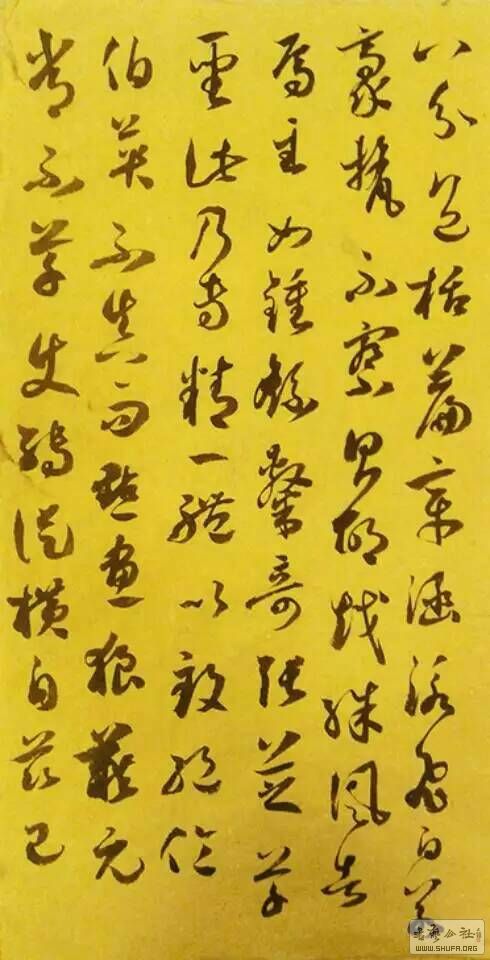 八分包括篇章涵泳飛白若
豪氂不察則胡越殊風者
焉至如鍾繇隸奇張芝草
聖此乃專精一體以致絕倫
伯英不真而點畫狼藉元
常不草使轉縱橫自茲已
WWW.SHUFA.ORG